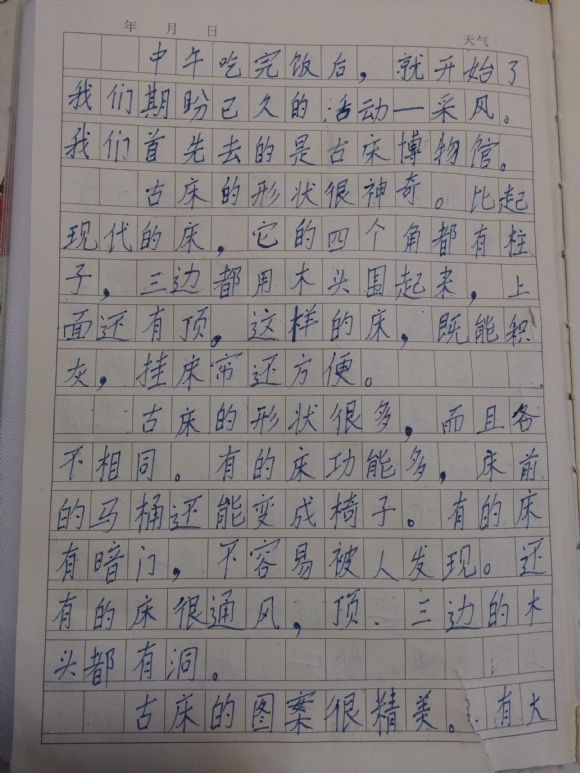 年 月 日 天气
中午吃完饭后，就开始了
我们期盼已久的活动一采风。
我们首先去的是古床博物馆。
古床的形状很神奇。比起
现代的床，它的四个角都有柱
子，三边都用木头围起来，上
面还有顶。这样的床，既能积
灰，挂床帘还方便。
古床的形状很多，而且各
不相同。有的床功能多，床前
的马桶还能变成椅子。有的床
有暗门，不容易被人发现。还
有的床很通风，顶、三边的木
头都有洞。
古床的图案很精美。有大